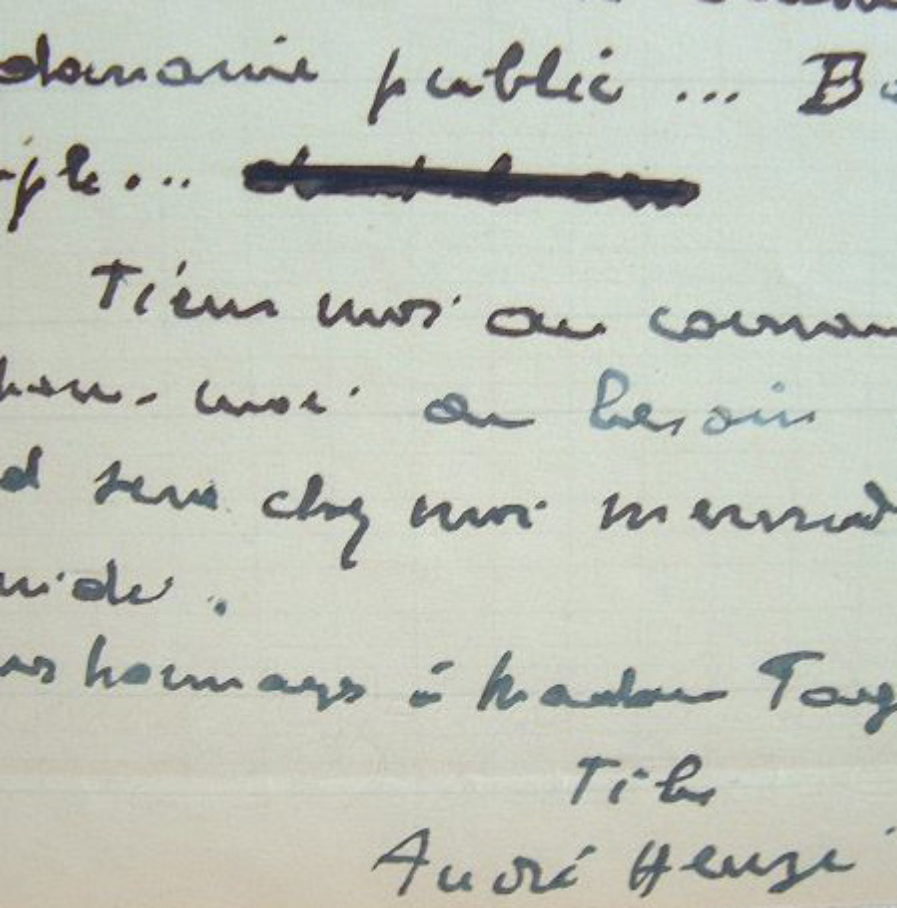 domaine public ... B
ple...
Tiens moi au couran
moi au besoin
sera chez moi mercred
midi.
hommages à Madame Tag
André Heuzé